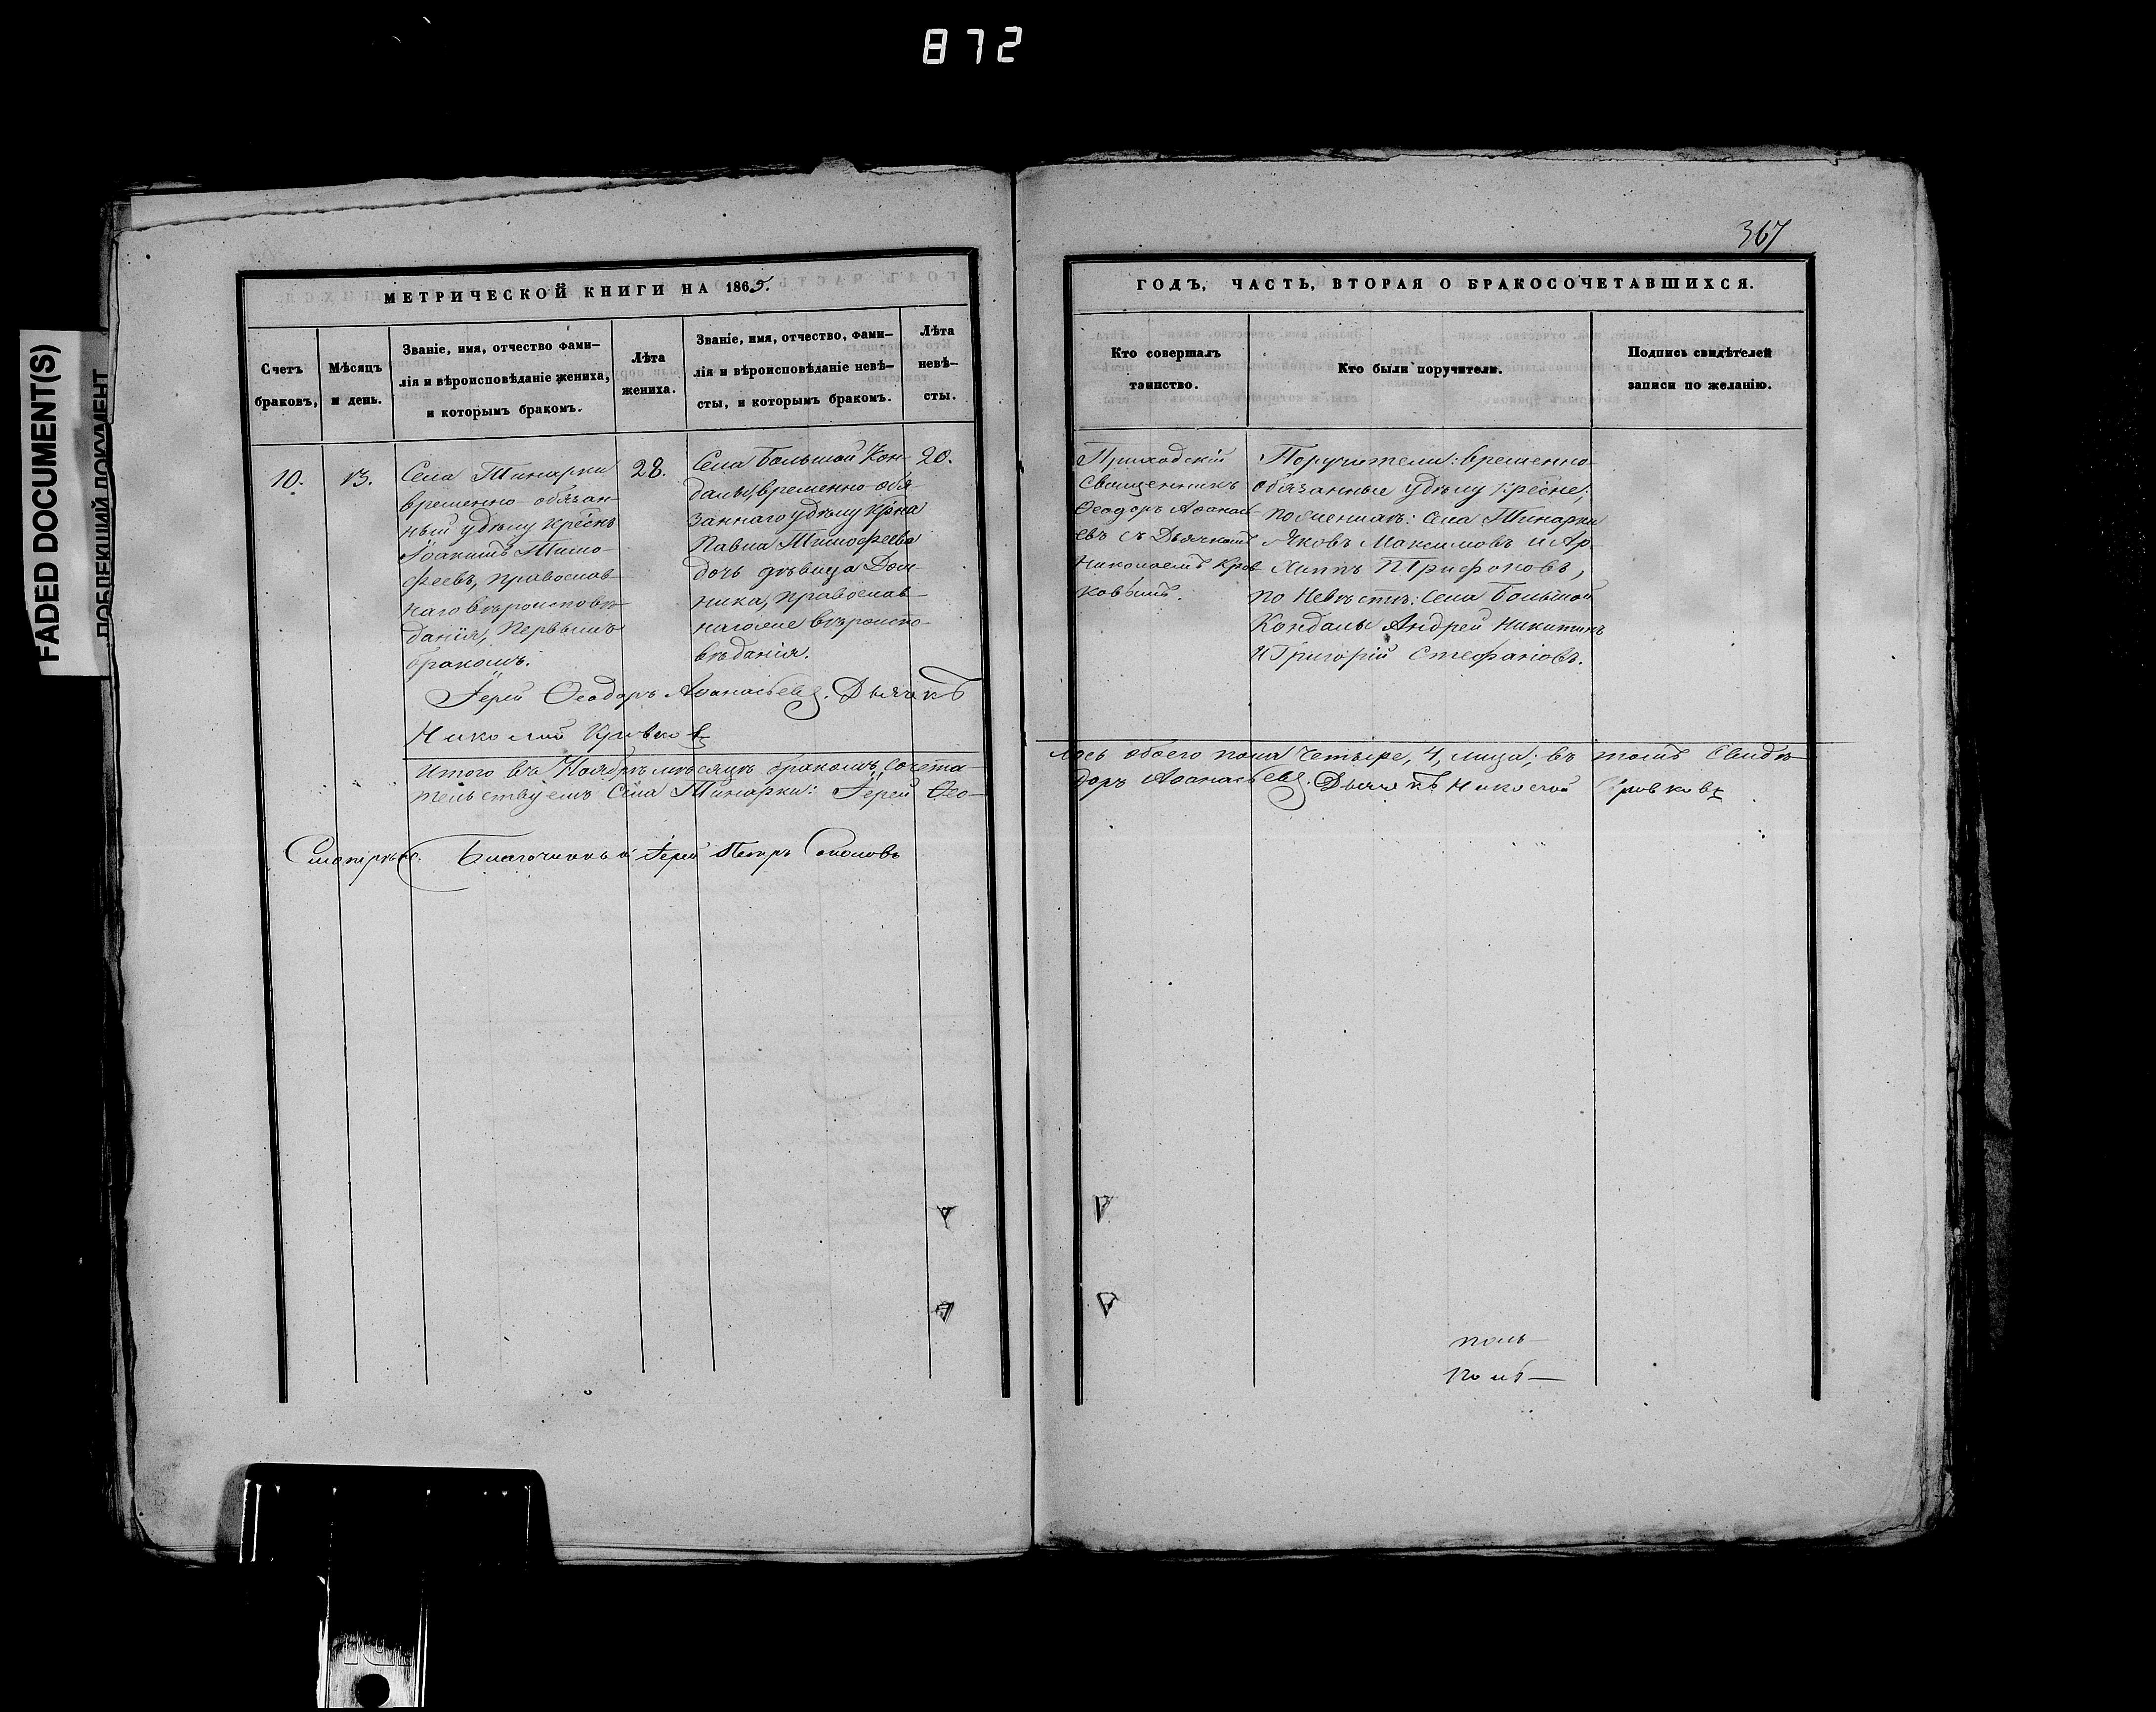 872
FADED DOCUMENT(S)
367
МЕТРИЧЕСКОЙ КНИГИ НА 1865.
Счетъ браковъ,
Мѣсяцъ и день.
Званіе, имя, отчество фами-
лія и вѣроисповѣданіе жениха,
и которымъ бракомъ.
Лѣта жениха.
Званіе, имя, отчество, фами-
лія и вѣроисповѣданіе невѣ-
сты, и которымъ бракомъ.
Лѣта невѣ-
сты.
10.
13.
Села Тинарки
временно-обязан-
ный удѣлу крѣснъ
Іоакимъ Тимо-
феевъ, православ-
наго вѣроисповѣ-
данія, первымъ
бракомъ.
28.
Села Большой Кон-
далы, временно-обя
заннаго удѣлу кр̃на
Павла Тимофеева
дочь дѣвица Дом-
ника, православ-
наго же вѣроиспо-
вѣданія.
20.
Іерей Ѳеодоръ Аѳанасьевъ. Дьячекъ
Николай Кровковъ
Итого въ Ноябрѣ мѣсяцѣ бракомъ сочета-
тельствуемъ Села Тинарки: Іерей Ѳео-
Благочинный Іерей Петръ Соколовъ
ГОДЪ, ЧАСТЬ, ВТОРАЯ О БРАКОСОЧЕТАВШИХСЯ.
Кто совершалъ
таинство.
Кто были поручители.
Подпись свидѣтелей
записи по желанію.
Приходскій
Священникъ
Ѳеодоръ Аѳанась-
евъ съ Дьячкомъ
Николаемъ Кров-
ковымъ.
Поручители: временно-
обязанные удѣлу крѣсне;
по женихѣ: села Тинарки
Яковъ Максимовъ и Ар-
хиппъ Трифоновъ,
по невѣстѣ: села Большой
Кондалы Андрей Никитинъ
и Григорій Стефановъ.
лось обоего пола четыре, 4, лица: въ томъ свидѣ-
доръ Аѳанасьевъ. Дьячекъ Николай Кровковъ